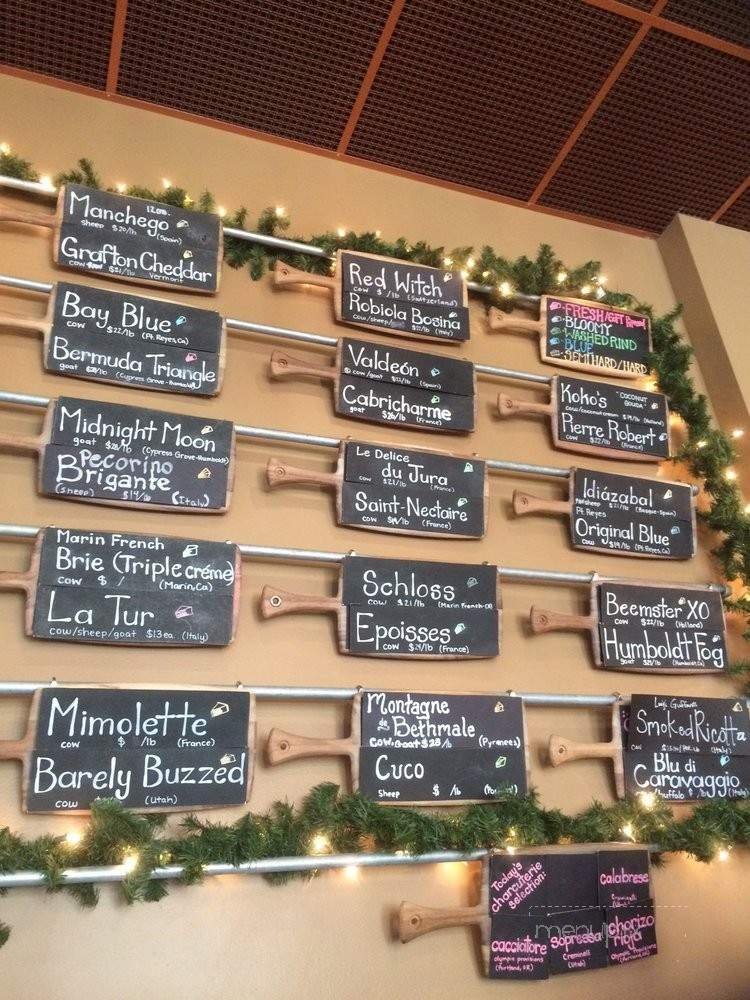 Manchego
12 mo.
sheep $20/lb (Spain)
Grafton Cheddar
cow $21/lb Vermont
Bay Blue
cow $22/lb (Pt. Reyes, Ca)
Bermuda Triangle
goat (Cypress Grove-Humboldt)
Midnight Moon
goat (Cypress Grove-Humboldt)
Pecorino
Brigante
(sheep) $19/lb (Italy)
Marin French
Brie (Triple créme)
cow $ / (Marin, Ca)
La Tur
cow/sheep/goat $13 ea (Italy)
Mimolette
cow $ /lb (France)
Barely Buzzed
cow (Utah)
Red Witch
cow $ /lb (Switzerland)
Robiola Bosina
cow/sheep (Italy)
Valdeón
cow/goat (Spain)
Cabricharme
goat $26/lb (France)
Le Delice
du Jura
cow $21/lb (France)
Saint-Nectaire
cow (France)
Schloss
cow $21/lb (Marin French-CA)
Epoisses
cow $29/lb (France)
Montagne
de Bethmale
cow, goat /lb (Pyranees)
Cuco
sheep $ /lb
FRESH
BLOOMY
WASHED RIND
BLUE
SEMIHARD/HARD
Koko's "COCONUT
GOUDA"
cow/coconut cream $19/lb (Holland)
Pierre Robert
cow $22/lb (France)
Idiázabal
sheep $21/lb (Basque-Spain)
Pt. Reyes
Original Blue
cow $19/lb (Pt. Reyes, Ca)
Beemster XO
cow $22/lb (Holland)
Humboldt Fog
goat $25/lb (Humboldt, Ca)
Luigi Guffanti
Smoked Ricotta
(Italy)
Blu di
Caravaggio
buffalo $ /lb (Italy)
Today's
charcuterie
selection:
Calabrese
Creminelli
(Utah)
cacciatore
olympic provisions
(Portland, OR)
Sopressa
Creminelli
(Utah)
chorizo
rioja
Olympic Provisions
(Portland, OR)